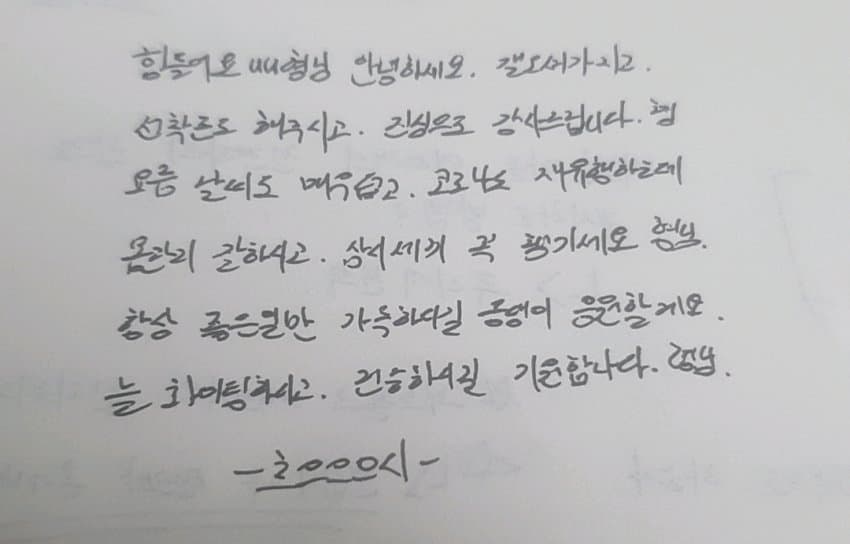 힘들어요uu형님 안녕하세요. 갤오셔가지고.
선착순도 해주시고. 진심으로 감사드립니다. 형
요즘 날씨도 매우습고. 코로나도 재유행하는데
몸관리 잘하시고. 삼시세끼 꼭 챙기세요 형님.
항상 좋은일만 가득하다길 종영이 응원할게요.
늘 화이팅하시고. 건승하시길 기원합니다. 형님.
-호ㅇㅇㅇ시-